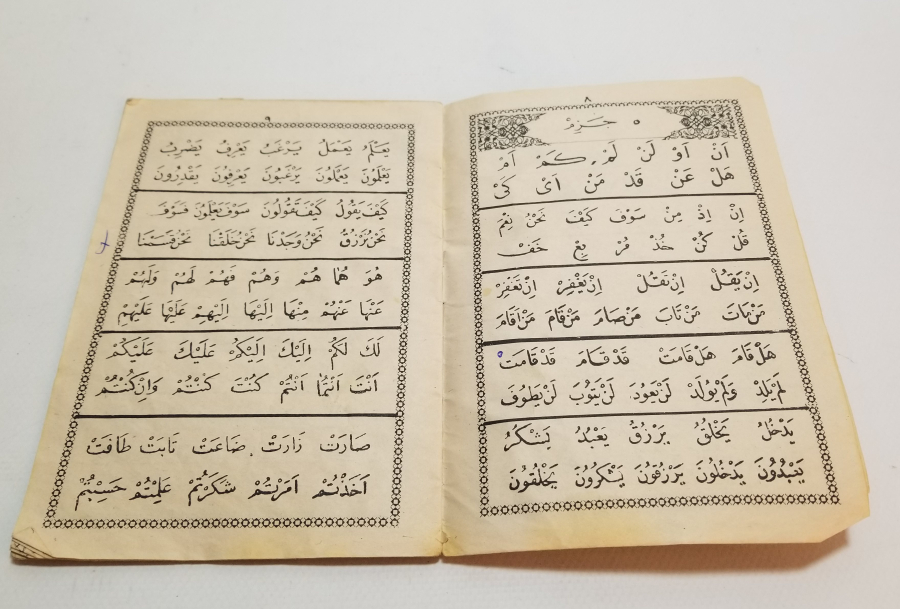 ٨
٥ جَزِمْ
اَنْ اَوْ لَنْ لَمْ كَمْ اَمْ
هَلْ عَنْ قَدْ مَنْ اَیْ كَیْ
اِنْ اِذْ مِنْ سَوْفَ كَيْفَ نَحْنُ نِعْمَ
قُلْ كُنْ خُذْ مُرْ بِعْ خَفْ
اِنْ يَقُلْ اِنْ نَقُلْ اِنْ يَغْفِرْ اِنْ تَغْفِرْ
مَنْ مَاتَ مَنْ تَابَ مَنْ صَامَ مَنْ قَامَ مَنْ اَقَامَ
هَلْ قَامَ هَلْ قَامَتْ قَدْ قَامَ قَدْ قَامَتْ
لَمْ يَلِدْ وَلَمْ يُولَدْ لَنْ يَعُودَ لَنْ يَتُوبَ لَنْ يَطُوفَ
يَدْخُلُ يَخْلُقُ يَرْزُقُ يَعْبُدُ يَشْكُرُ
يَعْبُدُونَ يَدْخُلُونَ يَرْزُقُونَ يَشْكُرُونَ يَخْلُقُونَ
٩
يَعْلَمُ يَعْمَلُ يَرْغَبُ يَعْرِفُ يَضْرِبُ
يَعْلَمُونَ يَعْمَلُونَ يَرْغَبُونَ يَعْرِفُونَ يَقْدِرُونَ
كَيْفَ يَقُولُ كَيْفَ تَقُولُونَ سَوْفَ تَعْلَمُونَ فَسَوْفَ
نَحْنُ نَرْزُقُ نَحْنُ وَجَدْنَا نَحْنُ خَلَقْنَا نَحْنُ قَسَمْنَا
هُوَ هُمَا هُمْ وَهُمْ فَهُمْ لَهُمْ وَلَهُمْ
عَنْهَا عَنْهُمْ مِنْهَا اِلَيْهَا اِلَيْهِمْ عَلَيْهَا عَلَيْهِمْ
لَكَ لَكُمْ اِلَيْكَ اِلَيْكُمْ عَلَيْكَ عَلَيْكُمْ
اَنْتَ اَنْتُمَا اَنْتُمْ كُنْتَ كُنْتُمْ وَاِنْ كُنْتُمْ
صَارَتْ زَارَتْ ضَاعَتْ تَابَتْ طَافَتْ
اَخَذْتُمْ اَمَرْتُمْ شَكَرْتُمْ عَلِمْتُمْ حَسِبْتُمْ